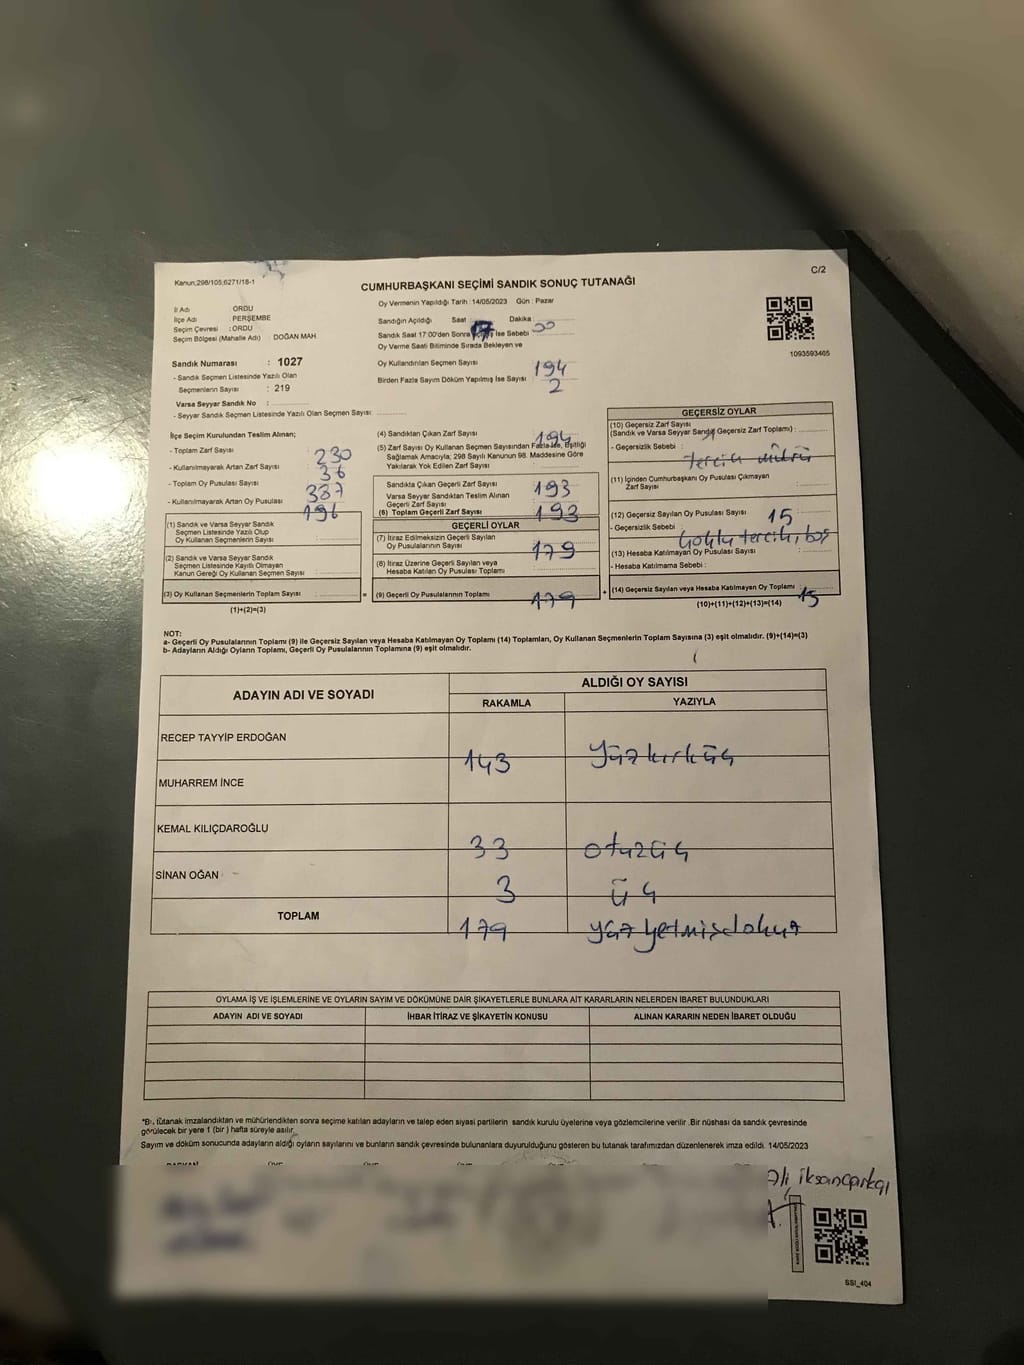 Kanun;298/105,6271/18-1
C/2
CUMHURBAŞKANI SEÇİMİ SANDIK SONUÇ TUTANAĞI
Oy Vermenin Yapıldığı Tarih :14/05/2023 Gün : Pazar
İl Adı ORDU
İlçe Adı : PERŞEMBE
Seçim Çevresi : ORDU
Seçim Bölgesi (Mahalle Adı) : DOĞAN MAH.
Sandığın Açıldığı Saat 17 Dakika 00
Sandık Saat 17:00'den Sonra İse Sebebi
Oy Verme Saati Bitiminde Sırada Bekleyen ve
Oy Kullandırılan Seçmen Sayısı 194
Birden Fazla Sayım Döküm Yapılmış İse Sayısı 2
1093593465
Sandık Numarası : 1027
- Sandık Seçmen Listesinde Yazılı Olan
Seçmenlerin Sayısı : 219
Varsa Seyyar Sandık No :
- Seyyar Sandık Seçmen Listesinde Yazılı Olan Seçmen Sayısı:
İlçe Seçim Kurulundan Teslim Alınan;
- Toplam Zarf Sayısı : 230
- Kullanılmayarak Artan Zarf Sayısı : 36
- Toplam Oy Pusulası Sayısı : 387
- Kullanılmayarak Artan Oy Pusulası 196
(1) Sandık ve Varsa Seyyar Sandık
Seçmen Listesinde Yazılı Olup
Oy Kullanan Seçmenlerin Sayısı :
(2) Sandık ve Varsa Seyyar Sandık
Seçmen Listesinde Kayıtlı Olmayan
Kanun Gereği Oy Kullanan Seçmen Sayısı :
(3) Oy Kullanan Seçmenlerin Toplam Sayısı :
(1)+(2)=(3)
(4) Sandıktan Çıkan Zarf Sayısı : 194
(5) Zarf Sayısı Oy Kullanan Seçmen Sayısından Fazla İse, Eşitliği
Sağlamak Amacıyla; 298 Sayılı Kanunun 98. Maddesine Göre
Yakılarak Yok Edilen Zarf Sayısı :
Sandıkta Çıkan Geçerli Zarf Sayısı : 193
Varsa Seyyar Sandıktan Teslim Alınan
Geçerli Zarf Sayısı :
(6) Toplam Geçerli Zarf Sayısı : 193
GEÇERLİ OYLAR
(7) İtiraz Edilmeksizin Geçerli Sayılan
Oy Pusulalarının Sayısı : 179
(8) İtiraz Üzerine Geçerli Sayılan veya
Hesaba Katılan Oy Pusulası Toplamı :
(9) Geçerli Oy Pusulalarının Toplamı : 179
GEÇERSİZ OYLAR
(10) Geçersiz Zarf Sayısı
(Sandık ve Varsa Seyyar Sandık Geçersiz Zarf Toplamı) :
- Geçersizlik Sebebi : tercih mührü
(11) İçinden Cumhurbaşkanı Oy Pusulası Çıkmayan
Zarf Sayısı
(12) Geçersiz Sayılan Oy Pusulası Sayısı 15
- Geçersizlik Sebebi : Çoklu tercih, boş
(13) Hesaba Katılmayan Oy Pusulası Sayısı
- Hesaba Katılmama Sebebi :
(14) Geçersiz Sayılan veya Hesaba Katılmayan Oy Toplamı 15
(10)+(11)+(12)+(13)=(14)
NOT:
a- Geçerli Oy Pusulalarının Toplamı (9) ile Geçersiz Sayılan veya Hesaba Katılmayan Oy Toplamı (14) Toplamları, Oy Kullanan Seçmenlerin Toplam Sayısına (3) eşit olmalıdır. (9)+(14)=(3)
b- Adayların Aldığı Oyların Toplamı, Geçerli Oy Pusulalarının Toplamına (9) eşit olmalıdır.
ADAYIN ADI VE SOYADI ALDIĞI OY SAYISI
RAKAMLA YAZIYLA
RECEP TAYYİP ERDOĞAN 143 yüzkırküç
MUHARREM İNCE
KEMAL KILIÇDAROĞLU 33 otuzüç
SİNAN OĞAN 3 üç
TOPLAM 179 yüzyetmişdokuz
OYLAMA İŞ VE İŞLEMLERİNE VE OYLARIN SAYIM VE DÖKÜMÜNE DAİR ŞİKAYETLERLE BUNLARA AİT KARARLARIN NELERDEN İBARET BULUNDUKLARI
ADAYIN ADI VE SOYADI İHBAR İTİRAZ VE ŞİKAYETİN KONUSU ALINAN KARARIN NEDEN İBARET OLDUĞU
*Bu tutanak imzalandıktan ve mühürlendikten sonra seçime katılan adayların ve talep eden siyasi partilerin sandık kurulu üyelerine veya gözlemcilerine verilir .Bir nüshası da sandık çevresinde
görülecek bir yere 1 (bir ) hafta süreyle asılır.
Sayım ve döküm sonucunda adayların aldığı oyların sayılarını ve bunların sandık çevresinde bulunanlara duyurulduğunu gösteren bu tutanak tarafımızdan düzenlenerek imza edildi. 14/05/2023
SSI_404